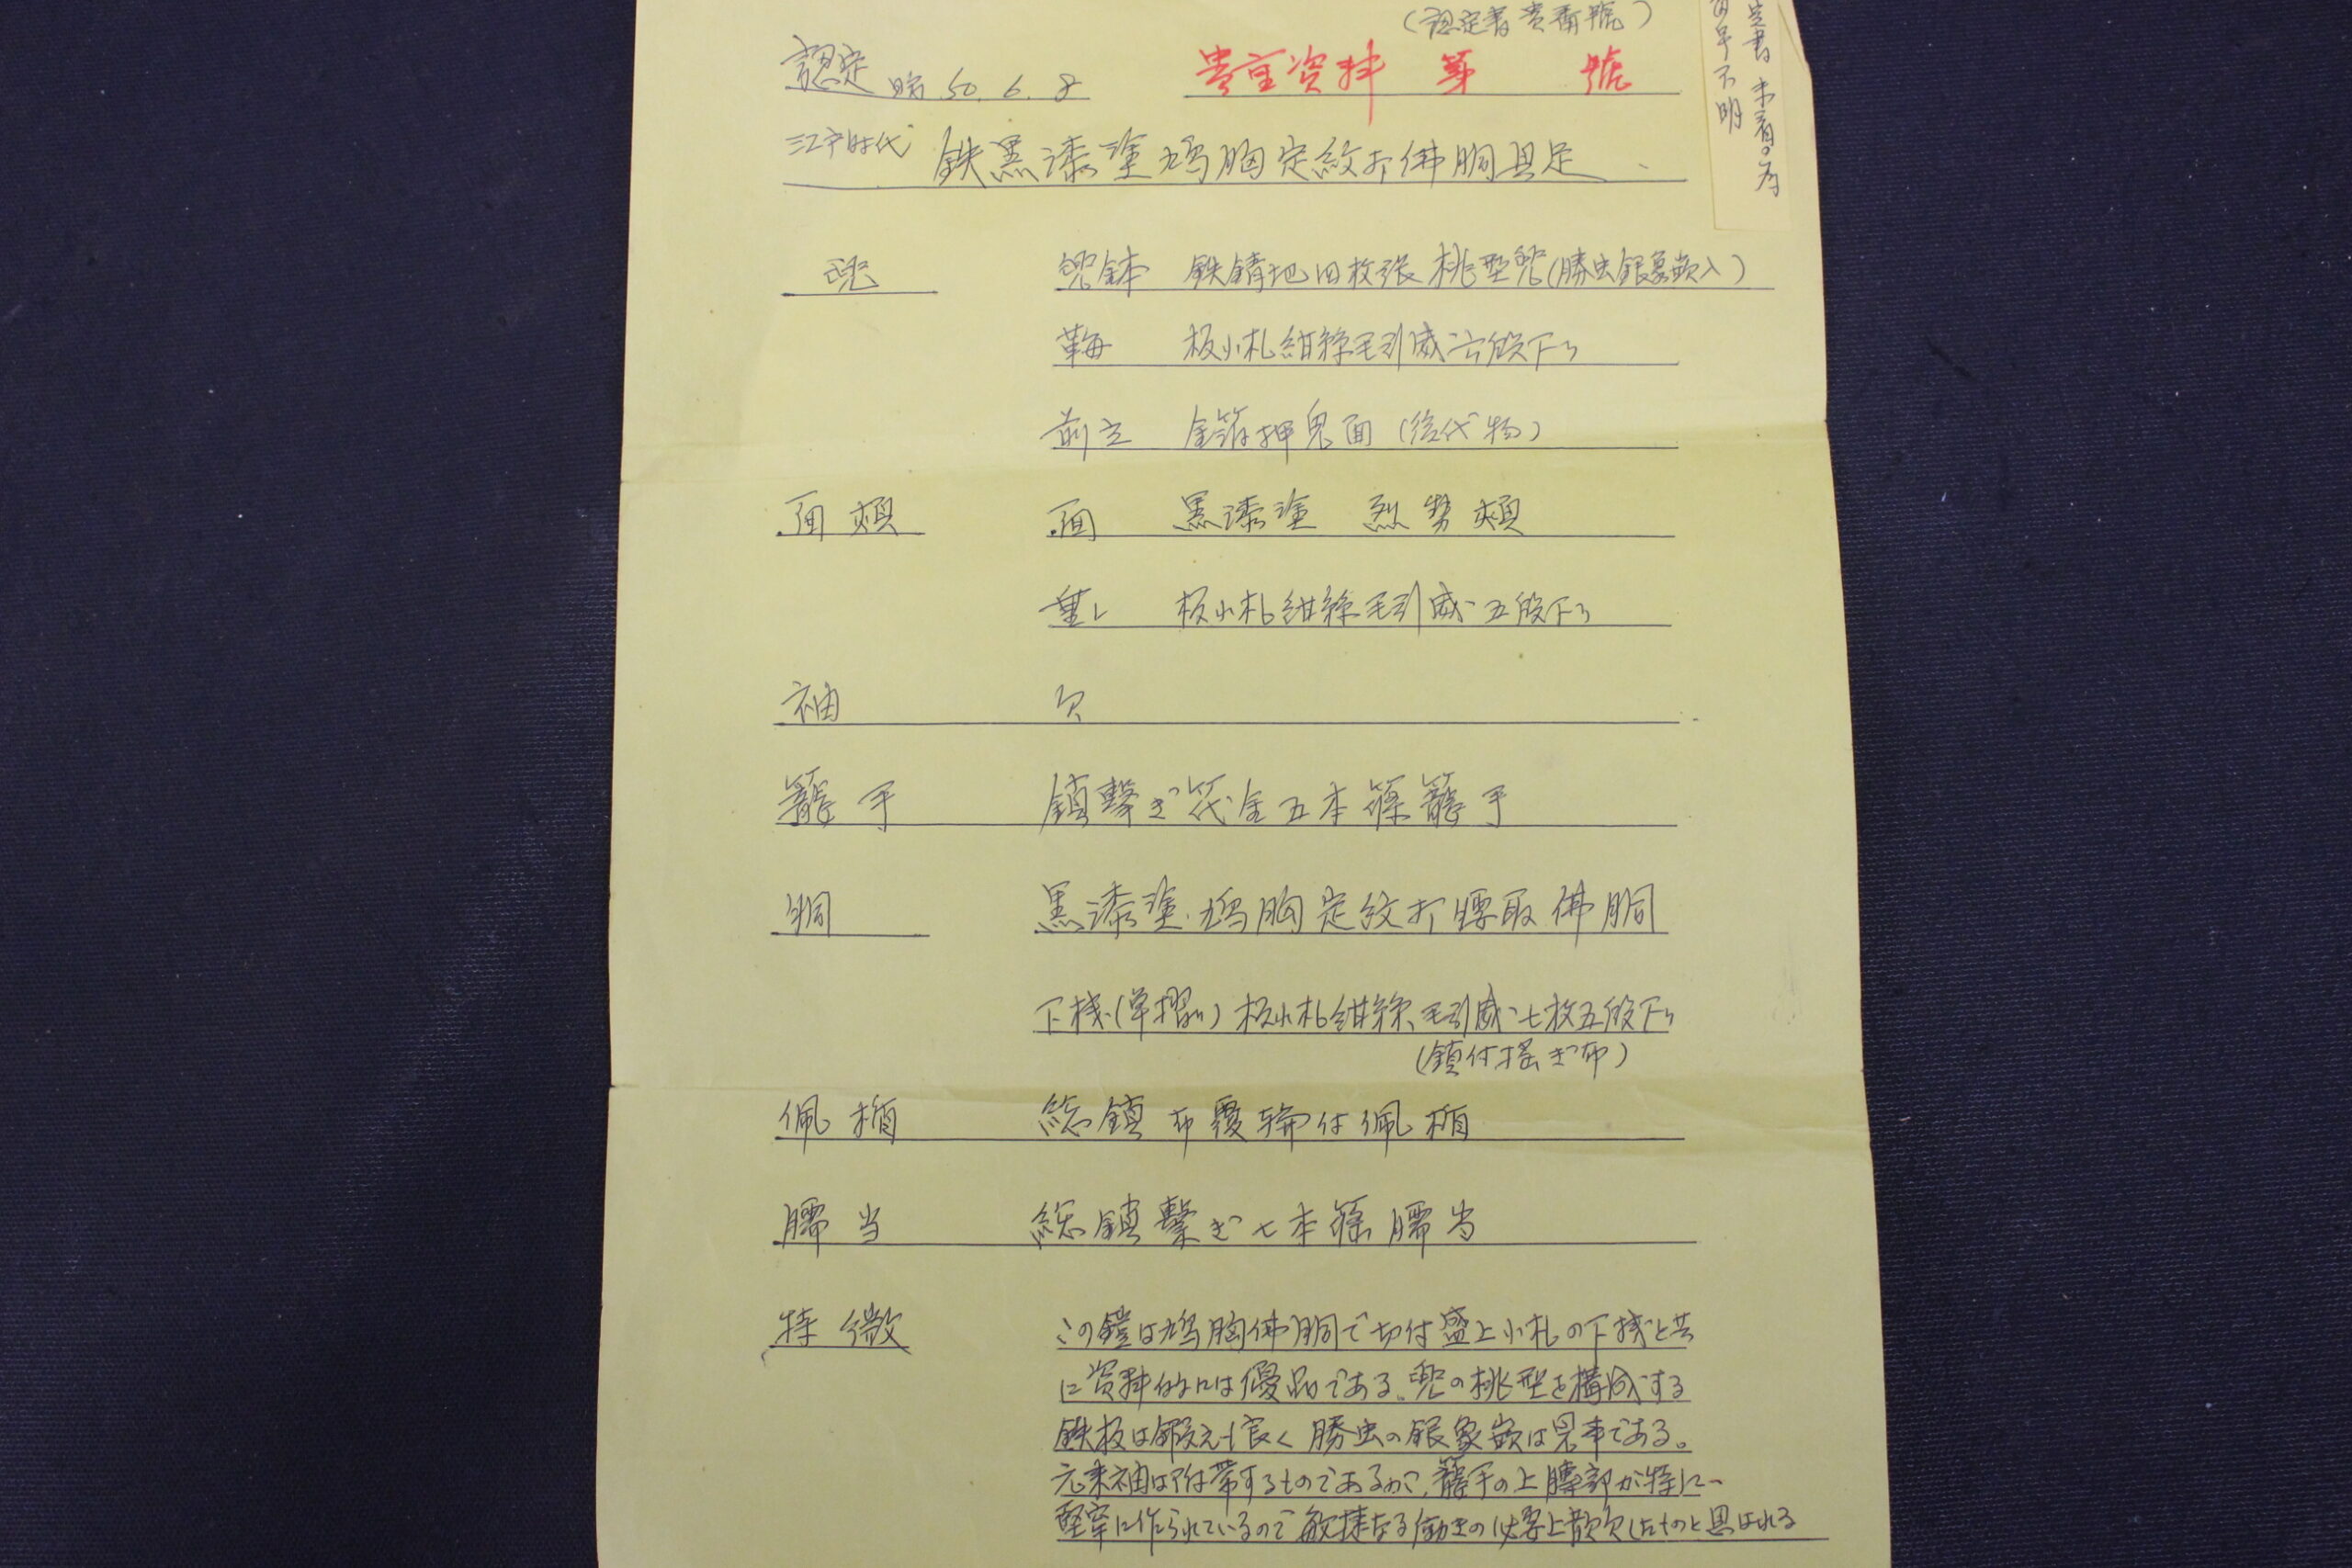 (認定書貴番號)
認定 昭50.6.8 貴重資料 第 號
江戸时代 鉄黒漆塗鳩胸定紋打佛胴具足
兜 兜鉢 鉄錆地四枚張桃型兜(勝虫銀象嵌入)
板小札紺糸毛引威六段下り
前立 金箔押鬼面(後代物)
面頬 面 黒漆塗 烈勢頬
垂レ 板小札紺糸毛引威五段下り
袖 欠
籠手 鎖繋ぎ筏金五本篠籠手
胴 黒漆塗鳩胸定紋打腰取佛胴
下散(草摺) 板小札紺糸毛引威七枚五段下り
(鎖付揺ぎ布)
佩楯 総鎖布覆輪付佩楯
臑当 総鎖繋ぎ七本篠臑当
特徴 この鎧は鳩胸佛胴で切付盛上小札の下散と共
に資料的には優品である。兜の桃型を構成する
鉄板は鍛えも良く勝虫の銀象嵌は見事である。
元来袖は附帯するものであるが、籠手の上膊部が特に
堅牢に作られているので敏捷なる働きの必要上散欠したものと思はれる
定書未着の為
番号不明